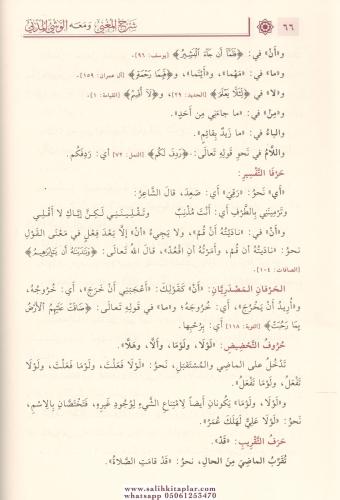 ٦٦ شَرْحُ المُغْنِي وَمَعَهُ الوَشْيُ المَدَنِي
و«أَنْ» في: ﴿فَلَمَّا أَن جَاءَ الْبَشِيرُ﴾ [يوسف: ٩٦].
و«ما» في: «مَهْما»، و«أَيْنَما»، و﴿فَبِمَا رَحْمَةٍ﴾ [آل عمران: ١٥٩].
و«لا» في ﴿لِئَلَّا يَعْلَمَ﴾ [الحديد: ٢٩]، و﴿لَا أُقْسِمُ﴾ [القيامة: ١].
و«مِنْ» في: «ما جاءَني مِن أَحَدٍ».
والباءُ في: «ما زَيدٌ بِقائِمٍ».
واللَّامُ في نَحوِ قَولِهِ تَعالَى: ﴿رَدِفَ لَكُم﴾ [النمل: ٧٢] أي: رَدِفَكُم.
حَرْفَا التَّفْسِيرِ:
«أَي» نَحوُ: «رَقِيَ» أَي: صَعِدَ، قالَ الشَّاعِرُ:
وَتَرْمِينَنِي بِالطَّرْفِ أَي: أَنْتَ مُذْنِبٌ وَتَقْلِينَنِي لَكِنَّ إِيَّاكِ لا أَقْلِي
و«أَنْ» في: «نادَيْتُهُ أَنْ قُمْ»، ولا يَجِيءُ «أَنْ» إلَّا بَعْدَ فِعْلٍ في مَعْنَى القَوْلِ
نحوُ: «نادَيتُهُ أَن قُم، وأَمَرْتُهُ أَنِ اقْعُدْ»، قالَ اللهُ تَعالَى: ﴿وَنَادَيْنَاهُ أَن يَا إِبْرَاهِيمُ﴾
[الصافات: ١٠٤].
الحَرْفانِ المَصْدَرِيَّانِ: «أَنْ» كَقَوْلِكَ: «أَعْجَبَنِي أَنْ خَرَجَ»، أي: خُرُوجُهُ،
و«أُرِيدُ أَنْ يَخْرُجَ»، أَي: خُرُوجَهُ؛ و«ما» في قوله تَعالَى: ﴿ضَاقَتْ عَلَيْهِمُ الْأَرْضُ
بِمَا رَحُبَتْ﴾ [التوبة: ١١٨] أَي: بِرُحْبِها.
حُرُوفُ التَّحْضِيضِ: «لَوْلَا، ولَوْمَا، وأَلَّا، وهَلَّا».
تَدْخُلُ عَلى الماضِي والمُسْتَقْبَلِ، نَحوُ: «لَوْلَا فَعَلْتَ، ولَوْمَا فَعَلْتَ، ولَوْلَا
تَفْعَلُ، ولَوْمَا تَفْعَلُ».
و«لَوْلَا، ولَوْمَا» يَكُونانِ أَيضاً لِامْتِناعِ الشَّيْءِ لِوُجُودِ غَيرِهِ، فَتَخْتَصَّانِ بِالِاسْمِ،
نَحوُ: «لَوْلَا عَلِيٌّ لَهَلَكَ عُمَرُ».
حَرْفُ التَّقْرِيبِ: «قَدْ».
تُقَرِّبُ الماضِيَ مِنَ الحالِ، نَحوُ: «قَدْ قامَتِ الصَّلاةُ».
www.salihkitaplar.com
whatsapp 05061253470